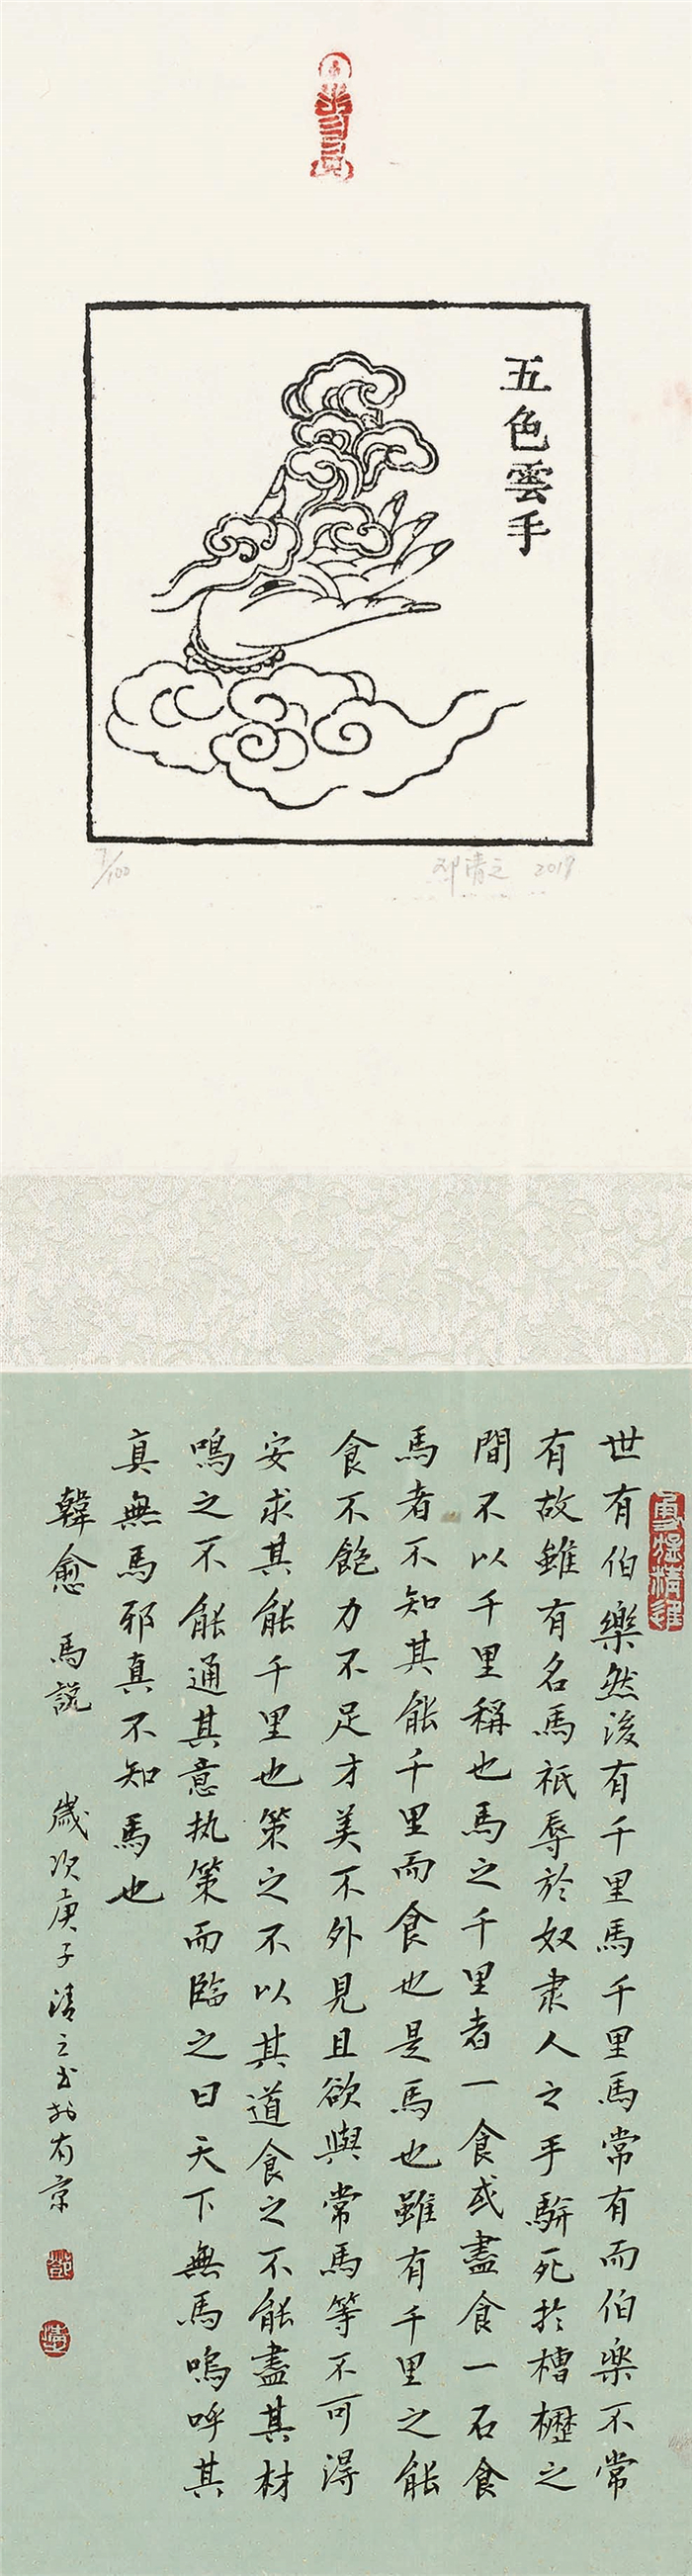 五色雲手
7/100
邓清之 2019
世有伯樂然後有千里馬千里馬常有而伯樂不常
有故雖有名馬祇辱於奴隶人之手駢死於槽櫪之
間不以千里稱也馬之千里者一食或盡食一石食
馬者不知其能千里而食也是馬也雖有千里之能
食不飽力不足才美不外見且欲與常馬等不可得
安求其能千里也策之不以其道食之不能盡其材
鳴之不能通其意执策而臨之曰天下無馬嗚呼其
真無馬邪真不知馬也
韓愈 馬説 歲次庚子清之书於南京